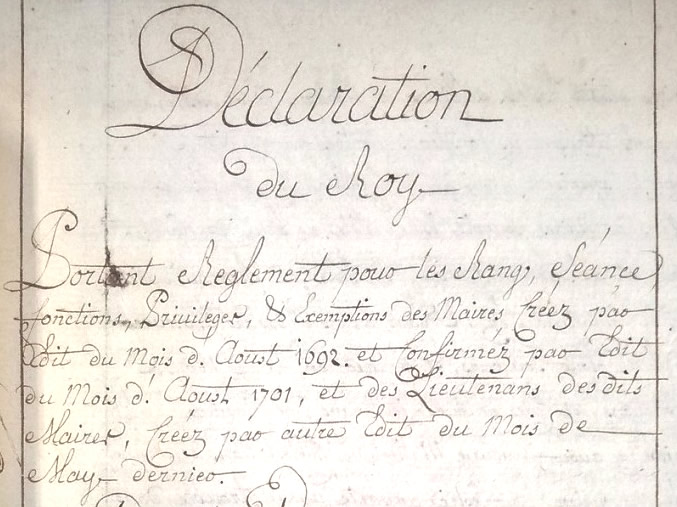 Déclaration
du Roy
Portant Reglement pour les Rangs, Séance,
fonctions, Privileges, & Exemptions des Maires Créez par
Edit du Mois d'. Aoust 1692. et Confirméz par Edit
du Mois d'. Aoust 1701, et des Lieutenans desdits
Maires, Créez par autre Edit du Mois de
May dernier.